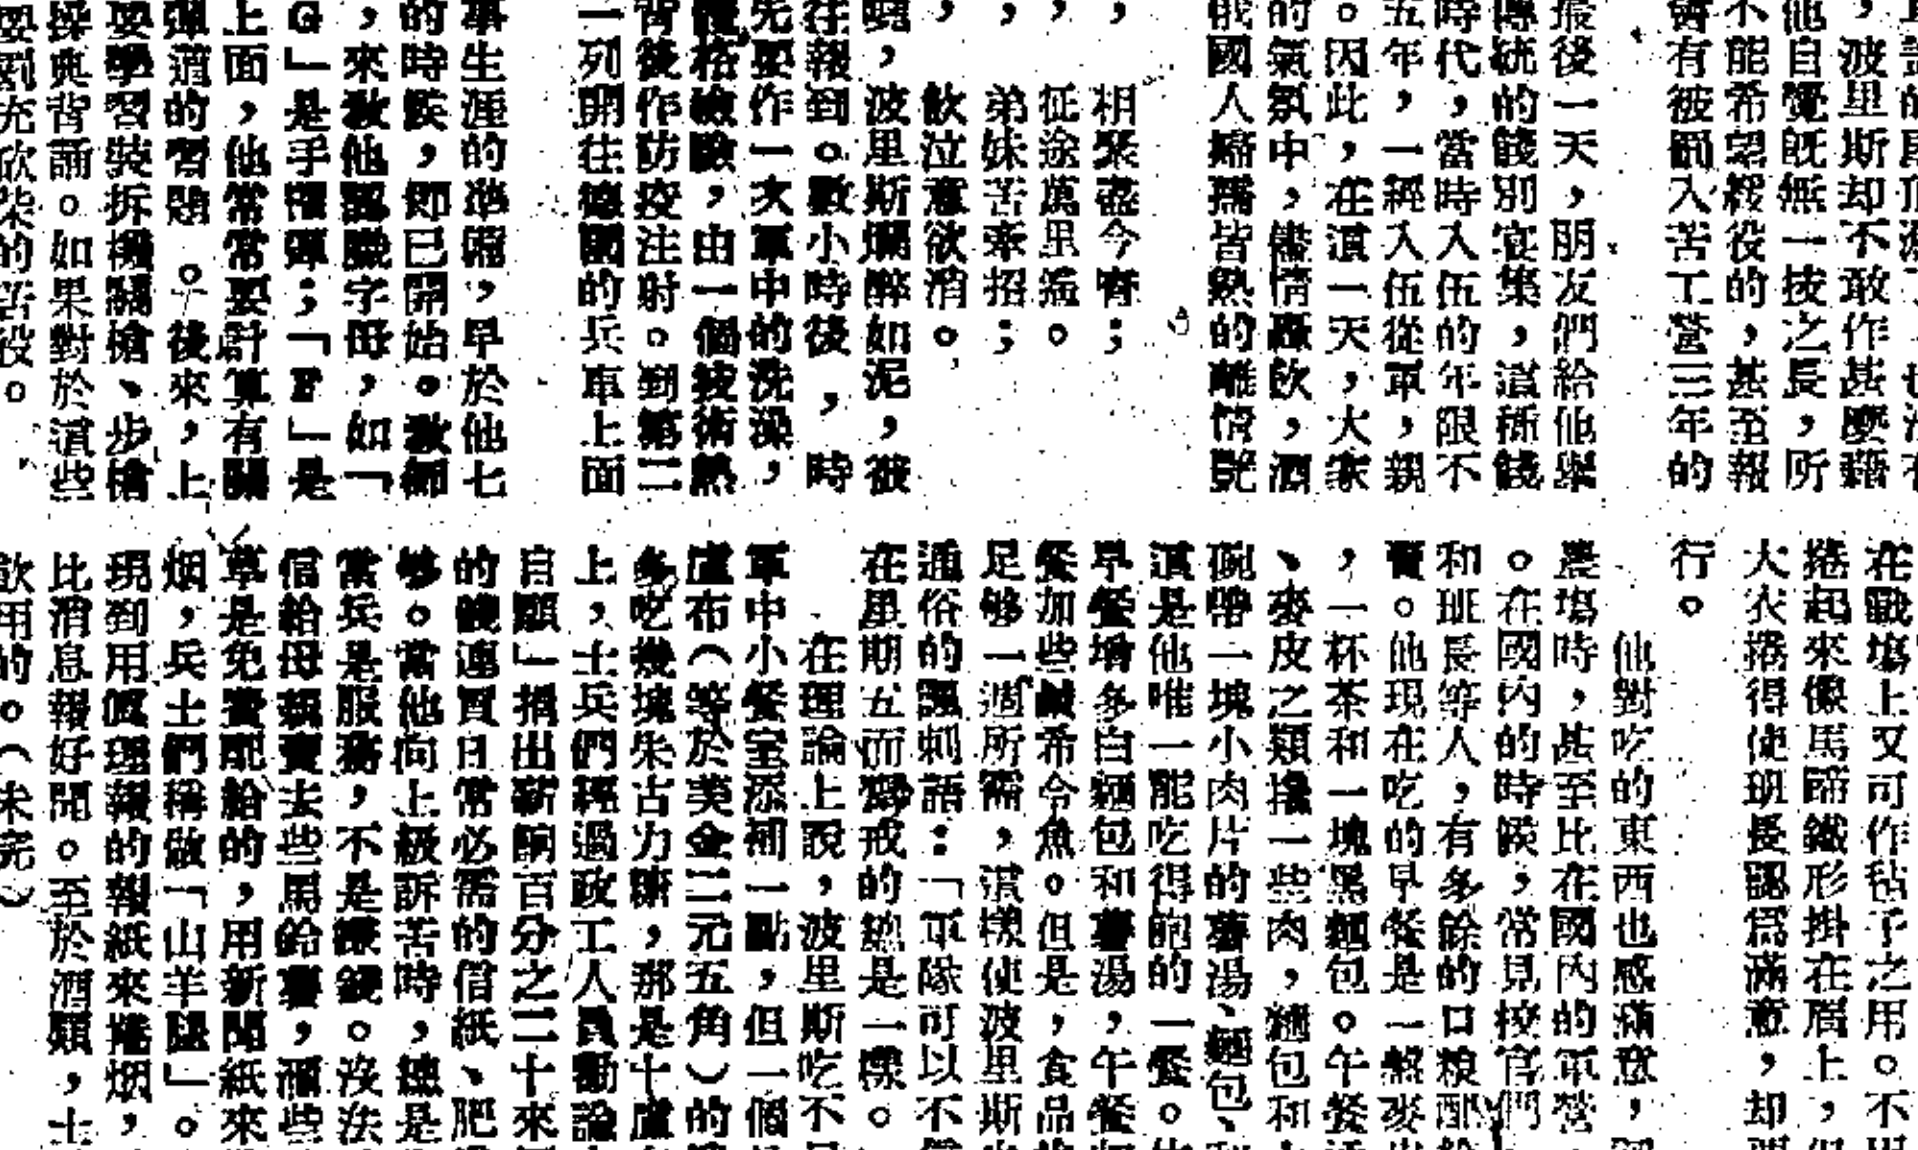 ，波里斯却不敢作甚麼藉
他自覺既無一技之長，所
不能希望緩役的，甚至報
會有被罰入苦工營三年的
最後一天，朋友們給他舉
傳統的餞別宴集，這種餞
時代，當時入伍的年限不
五年，一經入伍從軍，親
。因此，在這一天，大家
的氣氛中，儘情轟飲，酒
俄國人婦孺皆熟的離情艷
，相聚盡今宵；
，征途萬里遙。
，弟妹苦牽招；
，飲泣意欲消。
曉，波里斯爛醉如泥，被
往報到。數小時後，時
先要作一次軍中的洗澡，
體格檢驗，由一個技術熟
背後作防疫注射。到第二
一列開往德國的兵車上面
事生涯的準備，早於他七
的時候，即已開始。教師
，來教他認識字母，如「
G」是手榴彈；「F」是
上面，他常常要計算有關
彈道的習題。後來，上
要學習裝拆機關槍、步槍
操典背誦。如果對於這些
要罰充砍柴的苦役。
在戰塲上又可作毡子之用。不
捲起來像馬蹄鐵形掛在肩上，但
大衣捲得使班長認爲滿意，却
行。
他對吃的東西也感痛意，
農塲時，甚至比在國內的軍營
。在國內的時候，常見校官們
和班長等人，有多餘的口粮配給
賣。他現在吃的早餐是一盤麥
，一杯茶和一塊黑麵包。午餐
、麥皮之類攙一些肉，麵包和
碗帶一塊小肉片的薯湯、麵包、
這是他唯一能吃得飽的一餐。
早餐增多白麵包和薯湯，午餐
餐加些鹹希令魚。但是，食品
足够一週所需，這樣使波里斯
通俗的諷刺語：「軍隊可以不
在星期五而齋戒的總是一樣。
在理論上說，波里斯吃不
軍中小餐室添補一點，但一個
盧布（等於美金二元五角）的
多吃幾塊朱古力糖，那是十盧
上，士兵們經過政工人員勸論
自願」捐出薪餉百分之二十來
的錢連買日常必需的信紙、肥
够。當他向上級訴苦時，總是
當兵是服務，不是賺錢。沒法
信給母親賣去些馬鈴薯，滙些
草是免費配給的，用新聞紙來
烟，兵士們稱做「山羊腿」。
現到用眞理報的報紙來捲烟，
比消息報好聞。至於酒類，士
飲用的。（未完）